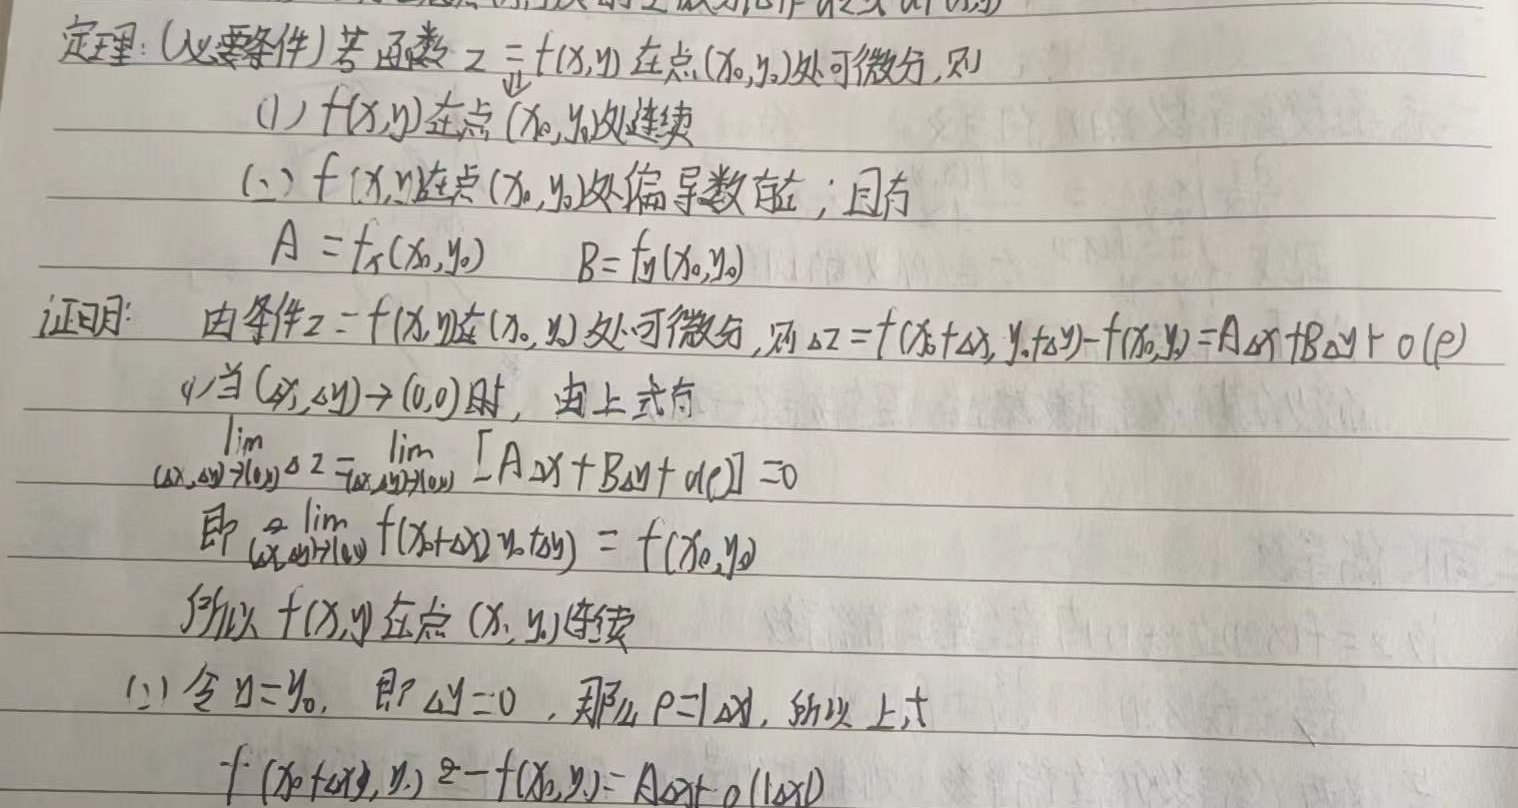 定理:(必要条件)若函数 z = f(x,y) 在点(x₀,y₀)处可微分,则
⇓
(1) f(x,y)在点(x₀,y₀)处连续
(2) f(x,y)在点(x₀,y₀)处偏导数存在;且有
A = fx(x₀,y₀) B = fy(x₀,y₀)
证明: 由条件z = f(x,y)在(x₀,y₀)处可微分,则 Δz = f(x₀+Δx, y₀+Δy) - f(x₀,y₀) = AΔx + BΔy + o(ρ)
(1)当(Δx,Δy)→(0,0)时, 由上式有
lim(Δx,Δy)→(0,0) Δz = lim(Δx,Δy)→(0,0) [AΔx + BΔy + o(ρ)] = 0
即 lim(Δx,Δy)→(0,0) f(x₀+Δx, y₀+Δy) = f(x₀,y₀)
所以 f(x,y) 在点 (x₀,y₀)连续
(2) 令 y = y₀, 即 Δy = 0 , 那么 ρ = |Δx|, 所以上式
f (x₀+Δx, y₀) - f(x₀,y₀) = AΔx + o(|Δx|)